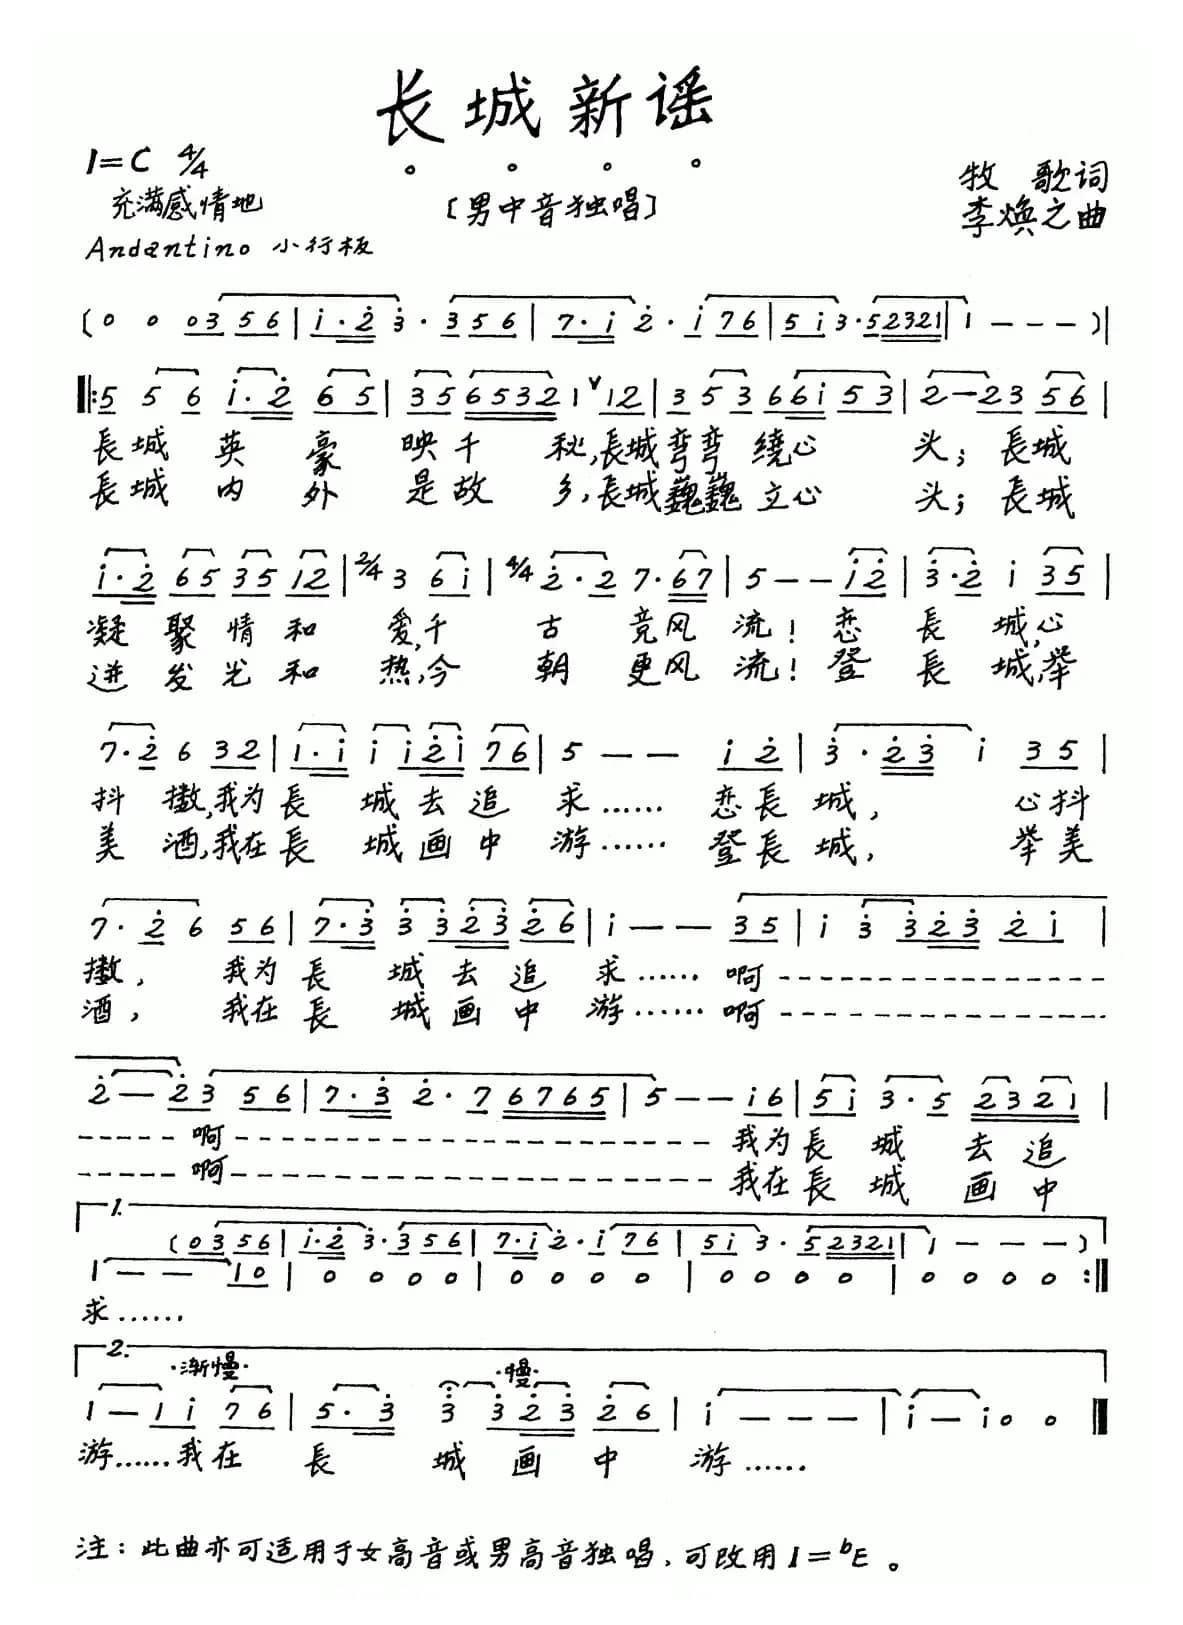 长城新谣
1=C 4/4
充满感情地
[男中音独唱]
牧 歌词
李焕之曲
Andantino 小行板
長城 英 豪 映千 秋,長城弯弯 绕心 头;長城
長城 内 外 是故 乡,長城巍巍 立心 头;長城
凝 聚 情 和 爱,千 古 竞风 流!恋 長 城,心
迸 发 光 和 热,今 朝 更风 流!登 長 城,举
抖 擞,我为 長 城 去 追 求…… 恋長 城, 心抖
美 酒,我在 長 城 画 中 游…… 登長 城, 举美
擞, 我为 長 城 去 追 求…… 啊
酒, 我在 長 城 画 中 游…… 啊
啊 我为長 城 去 追
啊 我在長 城 画 中
1.
求……
2.
·渐慢· ·慢·
游……我在 長 城 画 中 游……
注:此曲亦可适用于女高音或男高音独唱,可改用1=bE。